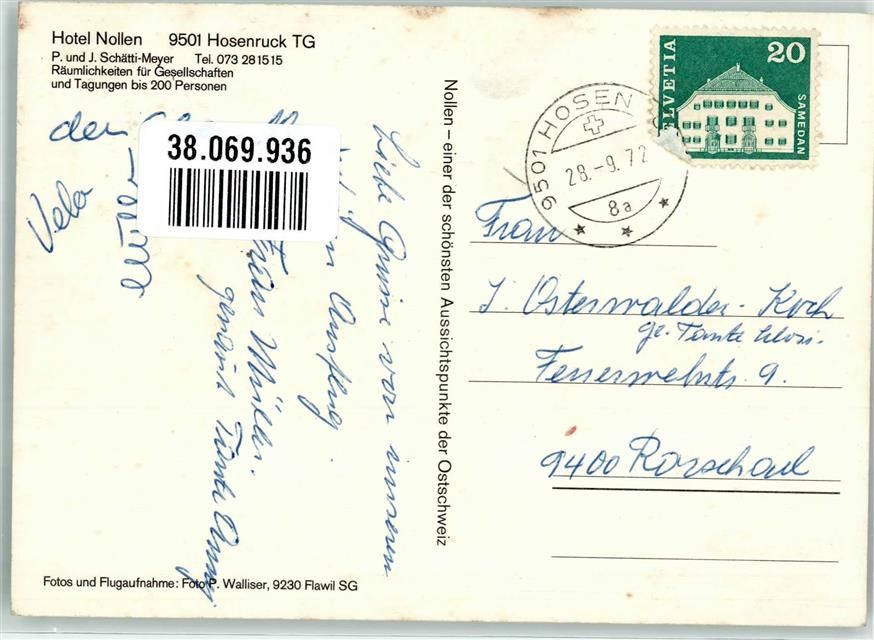 Hotel Nollen 9501 Hosenruck TG
P. und J. Schätti-Meyer Tel. 073 281515
Räumlichkeiten für Gesellschaften
und Tagungen bis 200 Personen
38.069.936
Liebe Grüsse von unserem
Ausflug.
Müller.
genannt Tante Anny
den
Vela
Müller
Fotos und Flugaufnahme: Foto P. Walliser, 9230 Flawil SG
Nollen – einer der schönsten Aussichtspunkte der Ostschweiz
HELVETIA
20
SAMEDAN
9501 HOSEN
28.-9.72
8a
Frau
J. Osterwalder-Koch
gr. Tante
Feuerwehrstr. 9.
9400 Rorschach